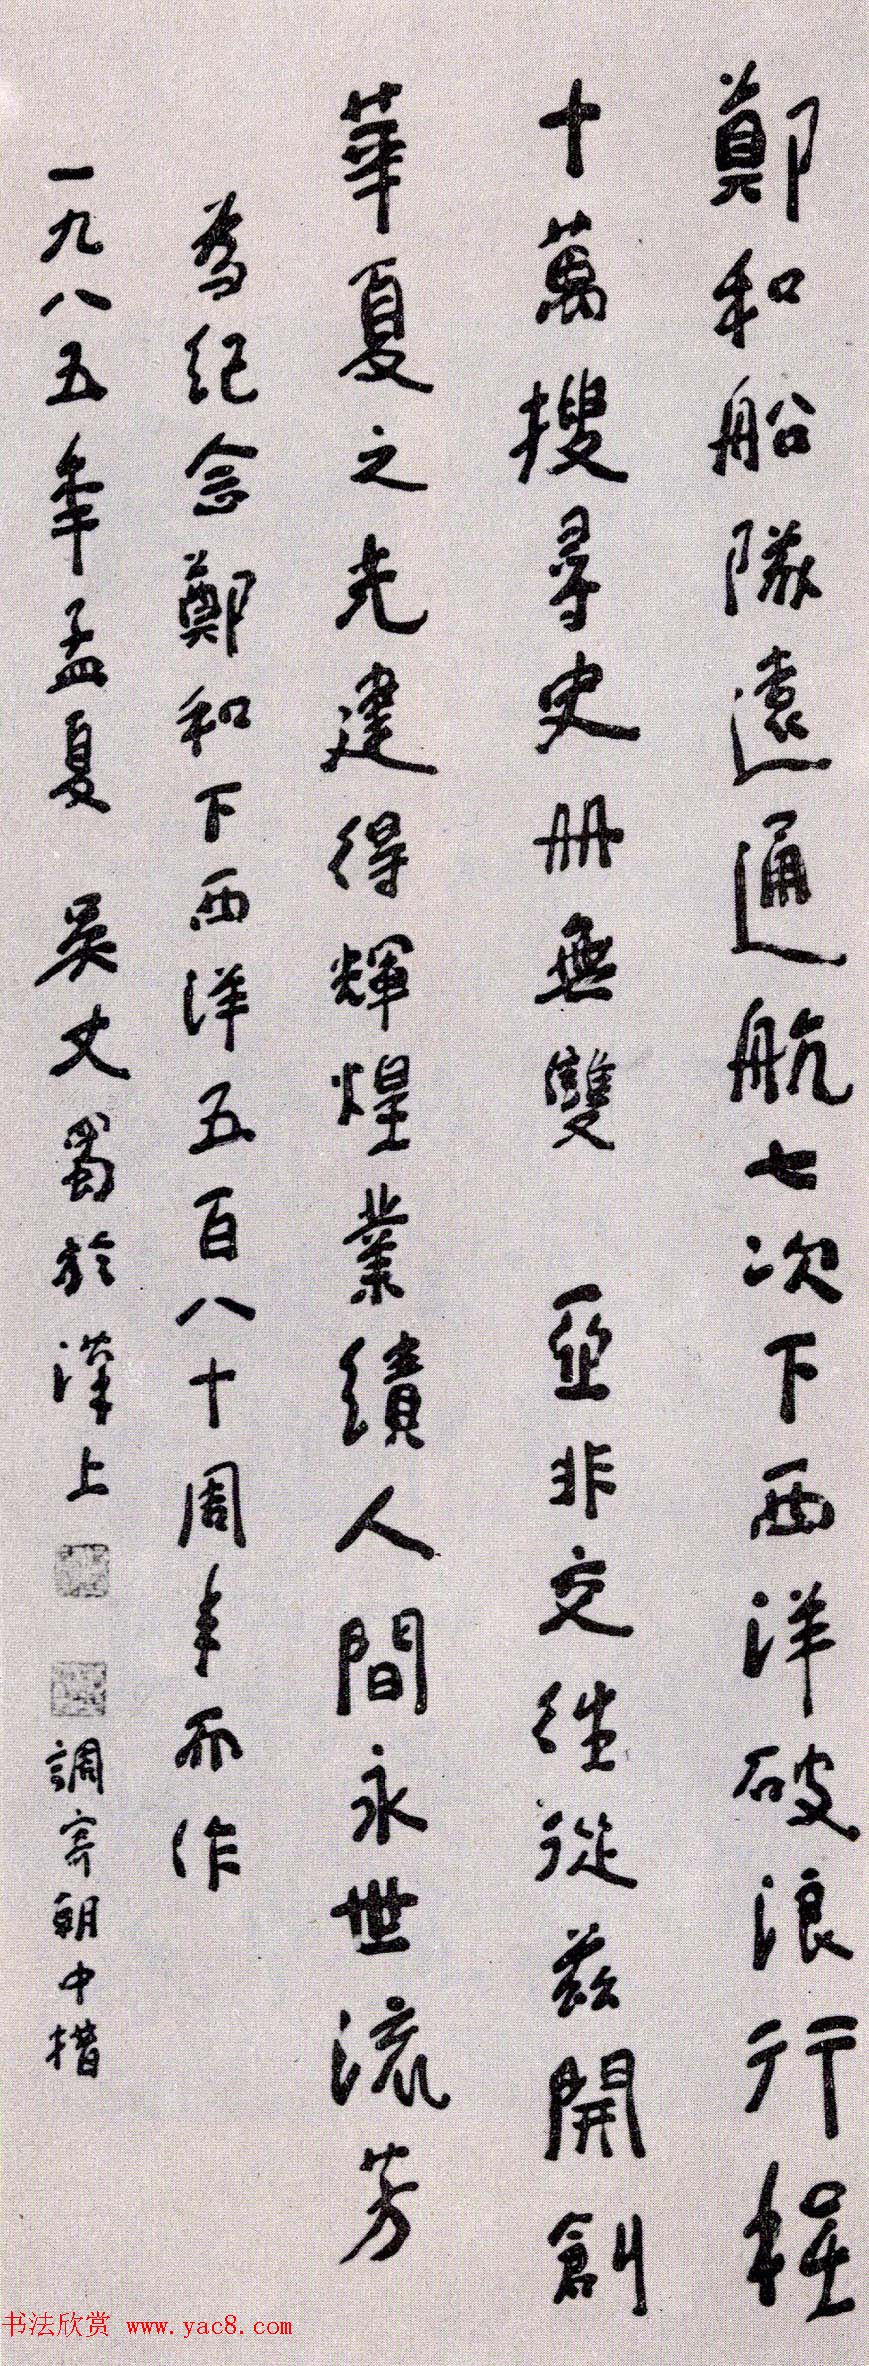 鄭和船隊遠通航七次下西洋破浪行程
十萬搜尋史册無雙 亞非交往從兹開創
華夏之光建得輝煌業績人間永世流芳
為纪念鄭和下西洋五百八十周年而作
一九八五年孟夏 吴丈蜀於漢上
調寄朝中措
书法欣赏 www.yac8.com